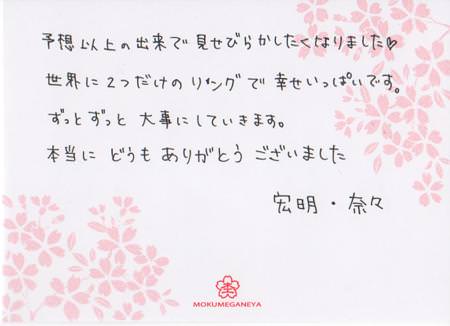 予想以上の出来で見せびらかしたくなりました♡
世界に2つだけのリングで幸せいっぱいです。
ずっとずっと大事にしていきます。
本当にどうもありがとうございました
宏明・奈々
MOKUMEGANEYA